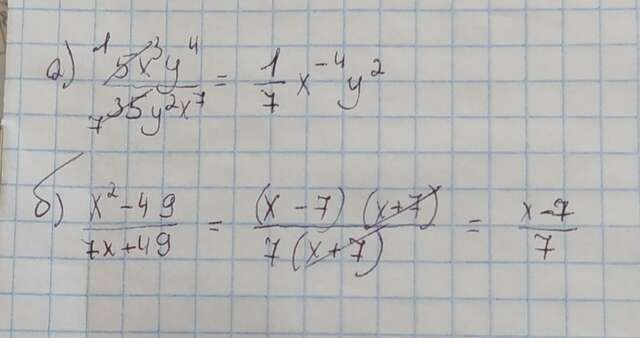 а) 5x³y⁴ / 35y²x⁷ = 1/7 x⁻⁴y²
б) x² - 49 / 7x + 49 = (x - 7) (x + 7) / 7 (x + 7) = x - 7 / 7